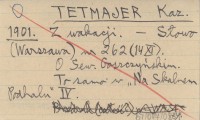 O TETMAJER Kaz.
1901. Z wakacji. — Słowo
(Warszawa) nr 262 (14 XI).
O Sew. Goszczyńskim.
To samo w „Na Skalnem
Podhalu" IV.